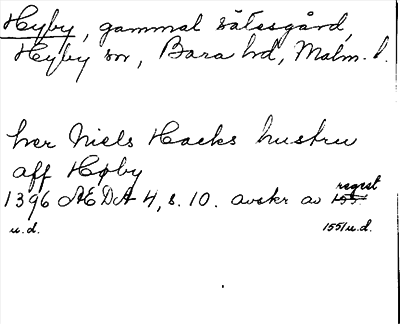 Hyby, gammal sätesgård,
Hyby sn, Bara hd, Malm. l.
her Niels Hacks hustru
aff Høby
1396 ÆDA 4, s. 10. avskr av regest
u.d. 1551 u.d.